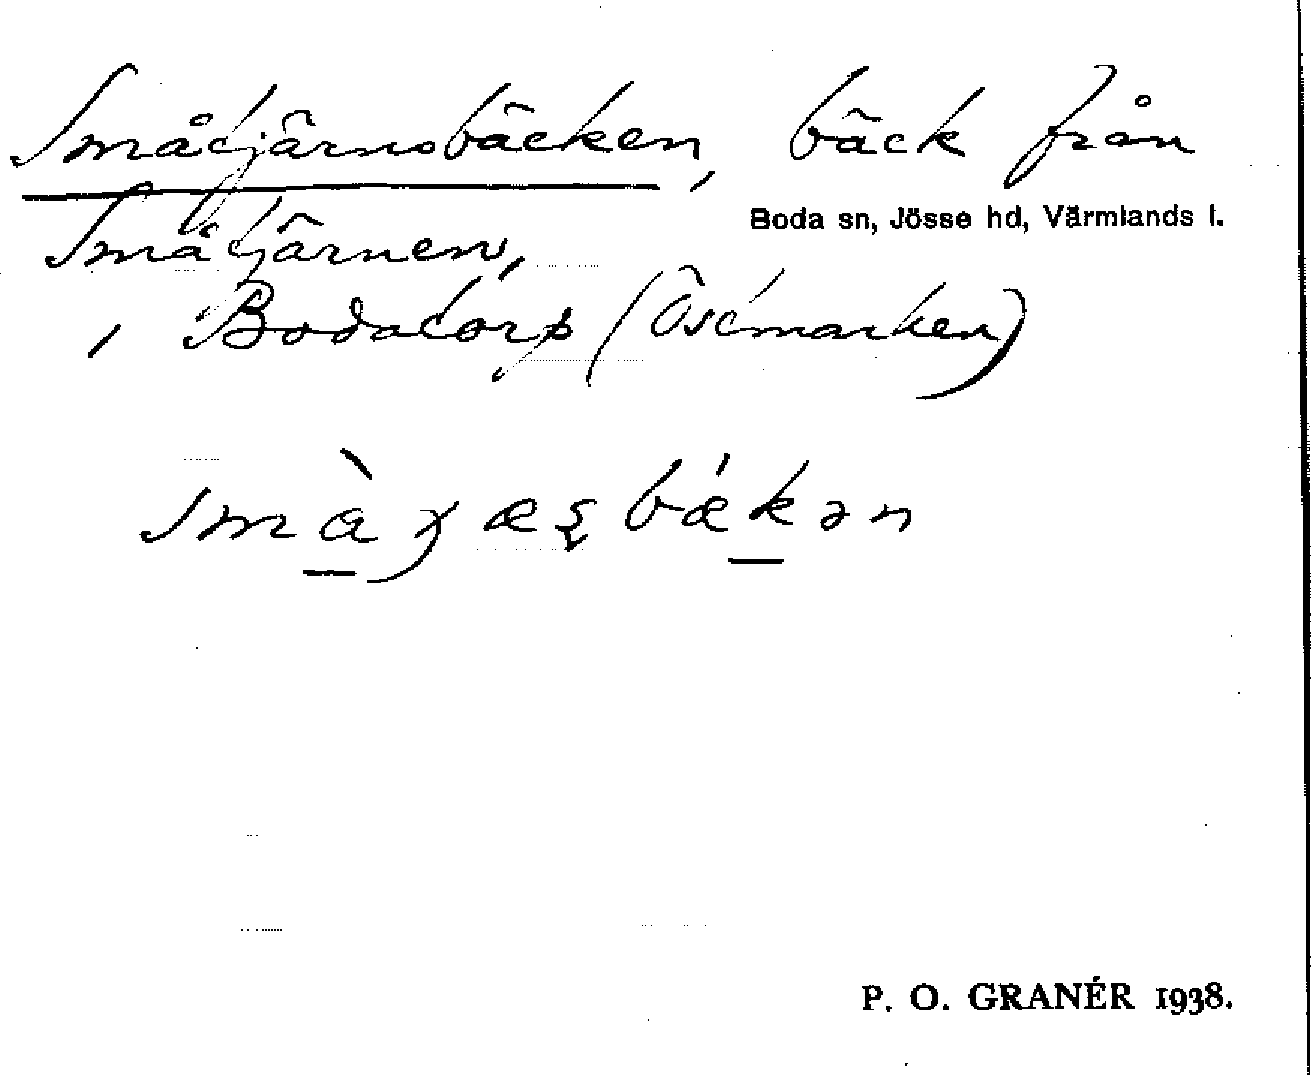 Småtjärnsbäcken, bäck från
Boda sn, Jösse hd, Värmlands l.
Småtjärnen,
i Bodatorp (Östmarken)
bǽkən
P. O. GRANÉR 1938.